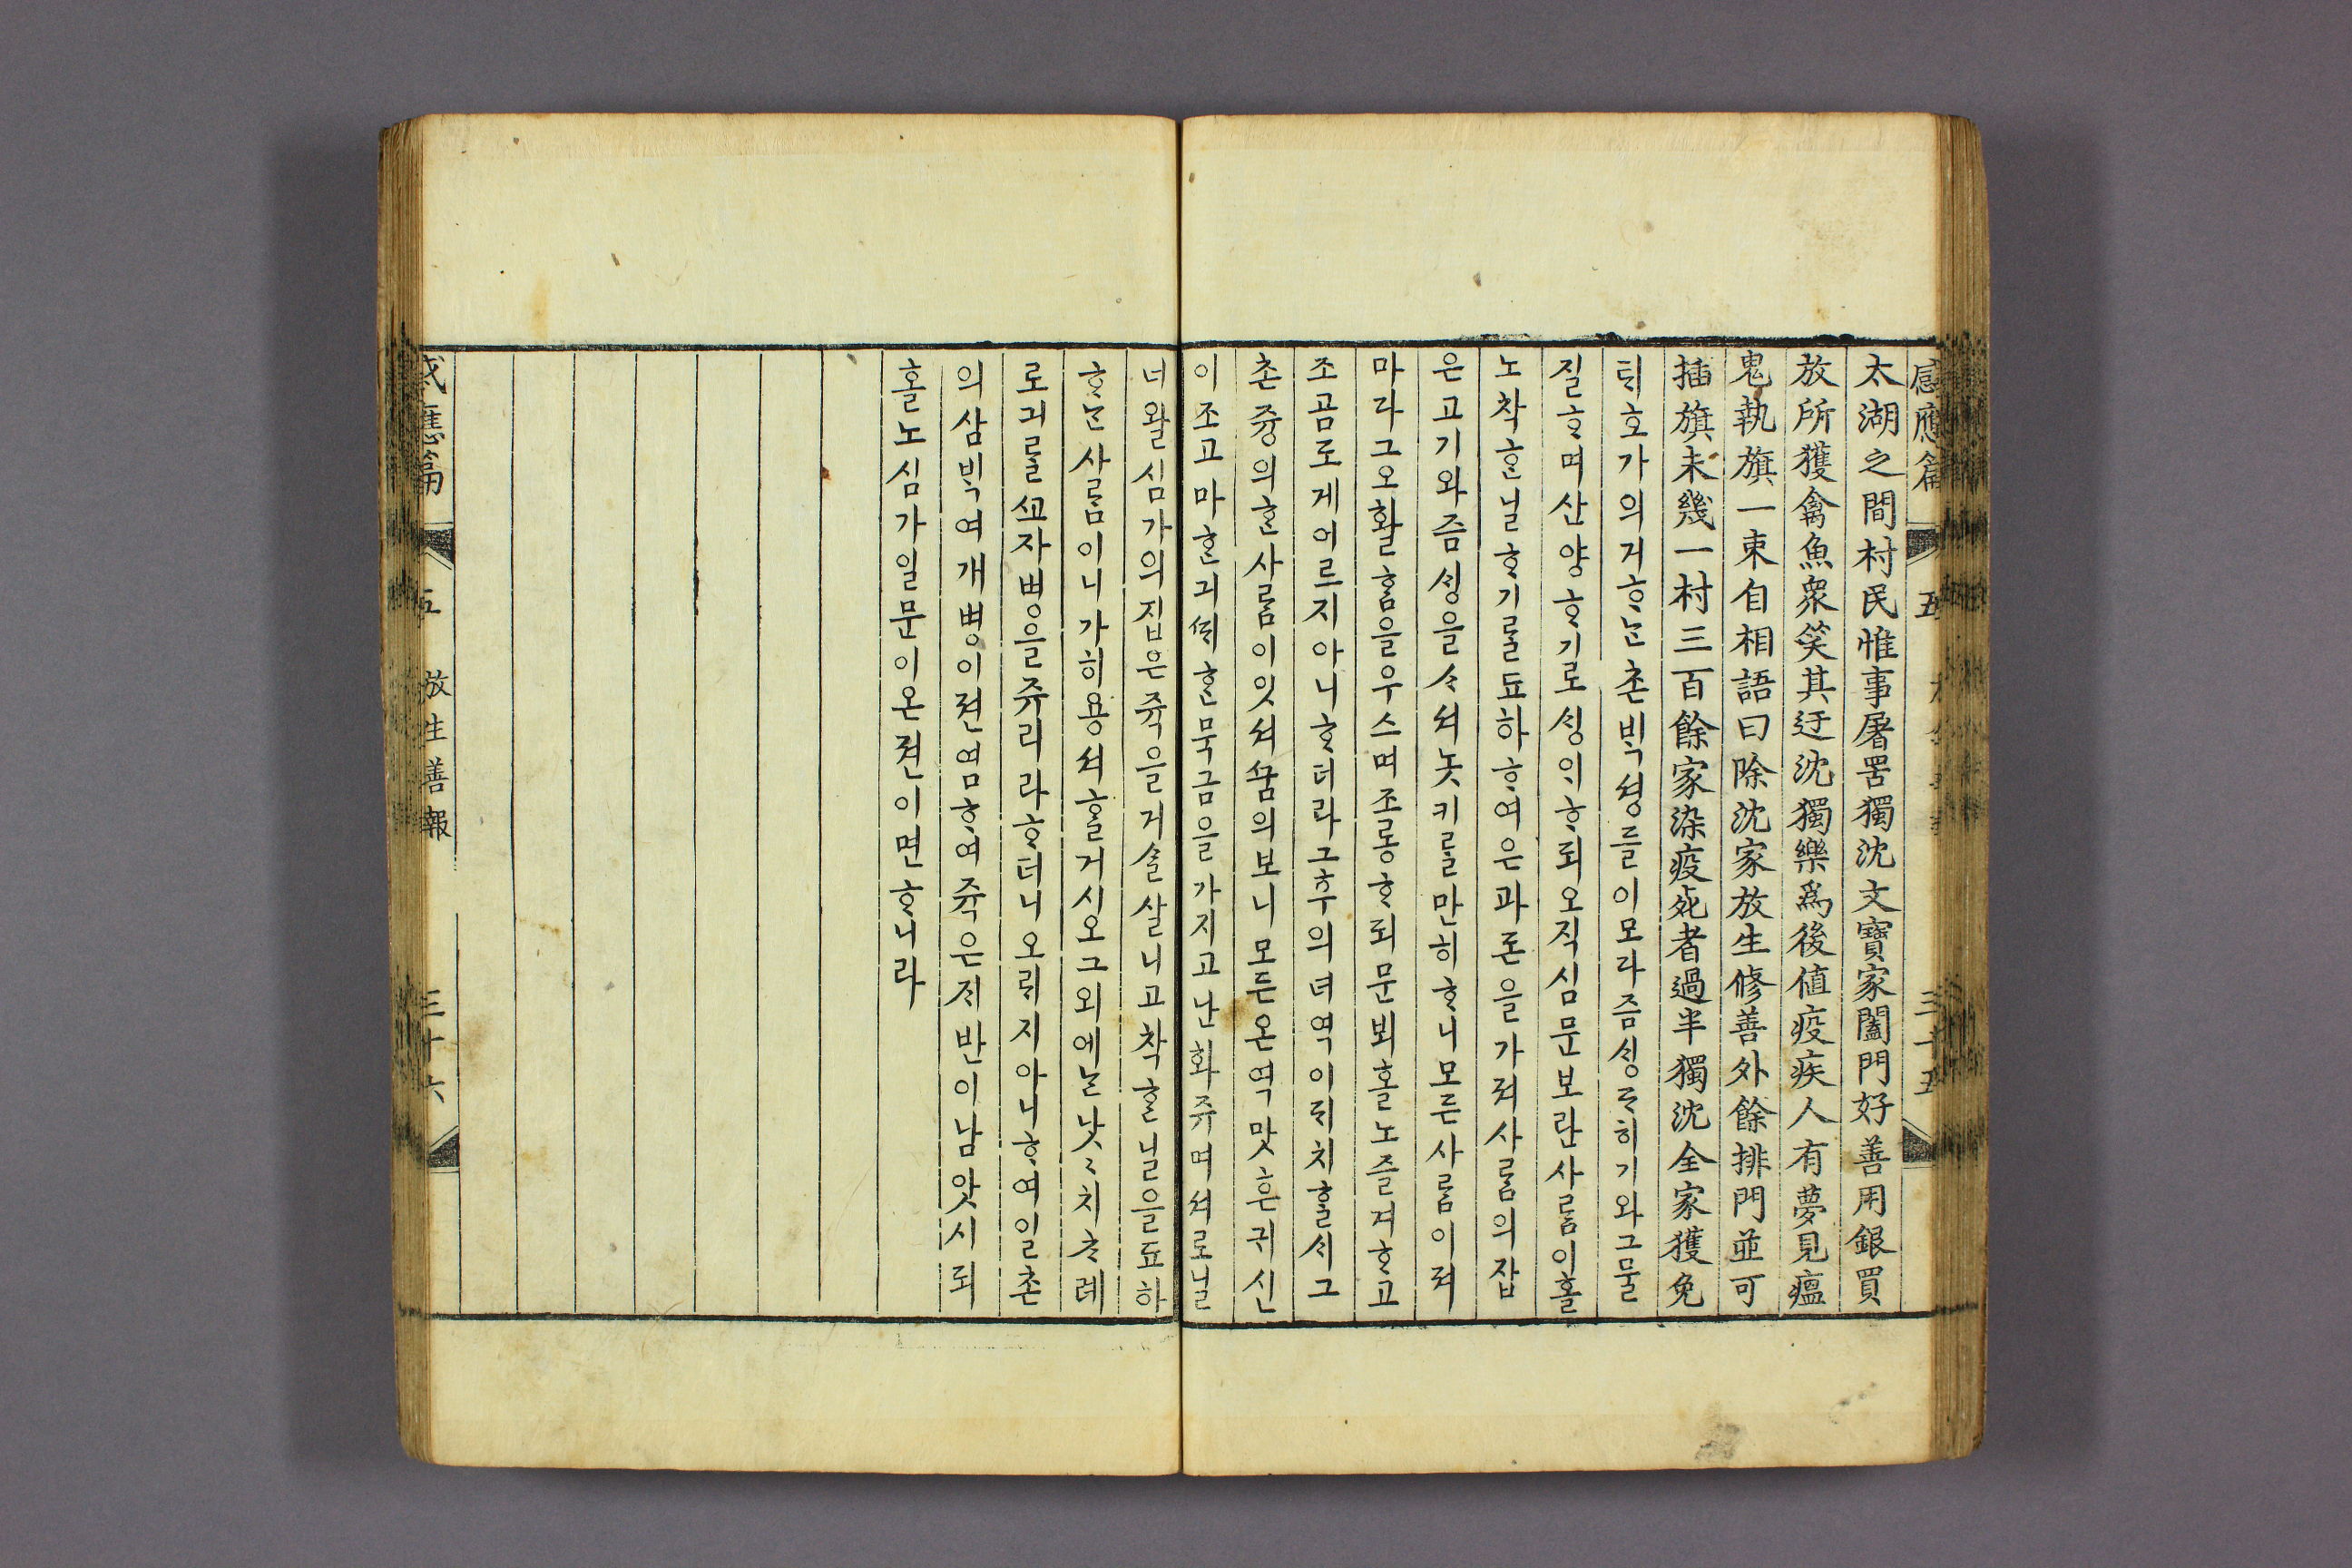 感應篇 五 三十五
太湖之間村民惟事屠罟獨沈文寶家闔門好善用銀買
放所獲禽魚衆笑其迂沈獨樂爲後値疫疾人有夢見瘟
鬼執旗一束自相語曰除沈家放生修善外餘排門並可
插旗未幾一村三百餘家染疫死者過半獨沈全家獲免
틱호가의거ᄒᆞᄂᆞᆫ촌ᄇᆡᆨ셩들이모라즘ᄉᆡᆼᄌᆞ히기와그물
질ᄒᆞ며산양ᄒᆞ기로ᄉᆡᆼᄋᆡᄒᆞ되오직심문보란사ᄅᆞᆷ이홀
노착ᄒᆞᆫ닐ᄒᆞ기ᄅᆞᆯ됴하ᄒᆞ여은과돈을가져사ᄅᆞᆷ의잡
은고기와즘ᄉᆡᆼ을ᄉᆞ셔놋키ᄅᆞᆯ만히ᄒᆞ니모든사ᄅᆞᆷ이져
마다그오활ᄒᆞᆷ을우스며조롱ᄒᆞ되문뵈홀노즐겨ᄒᆞ고
조곰도게어르지아니ᄒᆞ더라그후의녀역이ᄃᆡ치ᄒᆞᆯᄉᆡ그
촌즁의ᄒᆞᆫ사ᄅᆞᆷ이잇셔ᄭᅮᆷ의보니모든온역맛흔귀신
이조고마ᄒᆞᆫ긔ᄯᅴᄒᆞᆫ묵금을가지고난화쥬며셔로닐
너왈심가의집은쥭을거ᄉᆞᆯ살니고착ᄒᆞᆫ닐을됴하
ᄒᆞᄂᆞᆫ사ᄅᆞᆷ이니가히용셔ᄒᆞᆯ거시오그외에ᄂᆞᆫ낫〻치ᄎᆞ례
로긔ᄅᆞᆯᄭᅩ자병을쥬리라ᄒᆞ더니오ᄅᆡ지아니ᄒᆞ여일촌
의삼ᄇᆡᆨ여개병이젼염ᄒᆞ여쥭은ᄌᆡ반이남앗시되
홀노심가일문이온젼이면ᄒᆞ니라
感應篇 五 放生善報 三十六